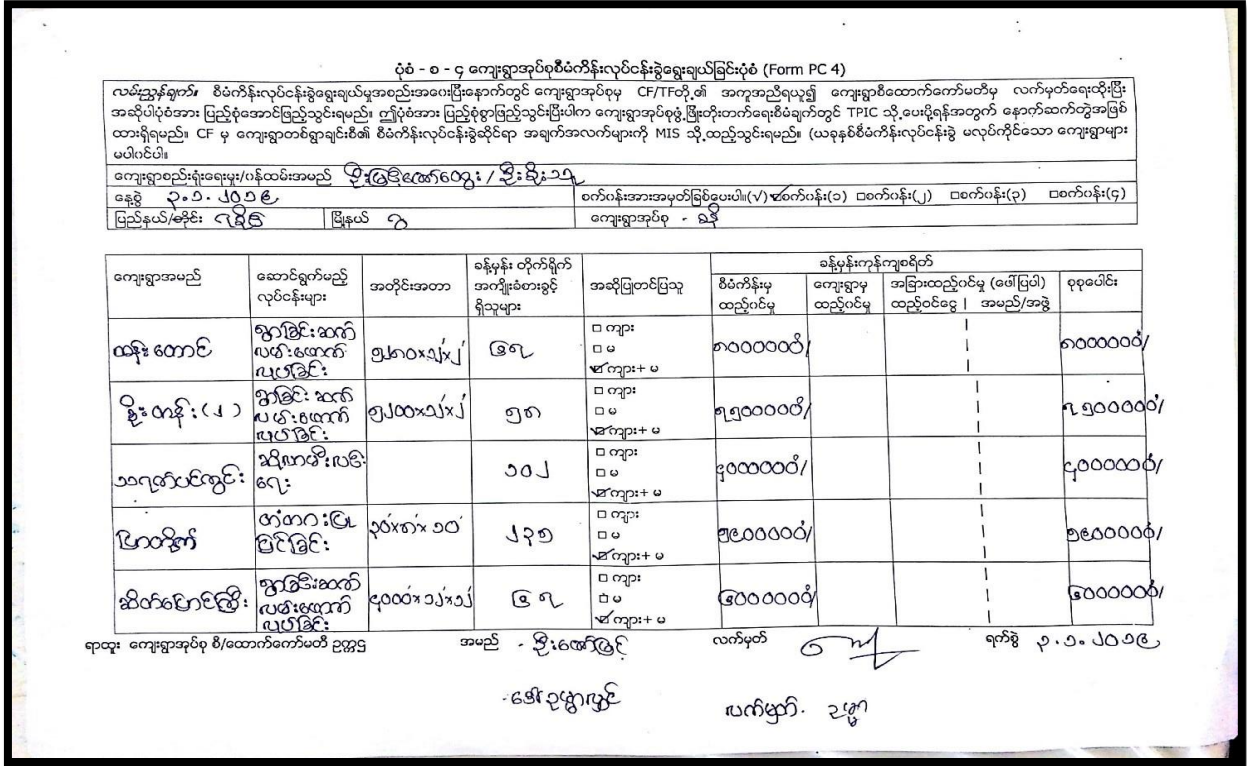 ပုံစံ - စ - ၄ ကျေးရွာအုပ်စုစီမံကိန်းလုပ်ငန်းခွဲရွေးချယ်ခြင်းပုံစံ (Form PC 4)
လမ်းညွှန်ချက်။ စီမံကိန်းလုပ်ငန်းခွဲရွေးချယ်မှုအစည်းအဝေးပြီးနောက်တွင် ကျေးရွာအုပ်စုမှ CF/TFတို့၏ အကူအညီရယူ၍ ကျေးရွာစီထောက်ကော်မတီမှ လက်မှတ်ရေးထိုးပြီး
အဆိုပါပုံစံအား ပြည့်စုံအောင်ဖြည့်သွင်းရမည်။ ဤပုံစံအား ပြည့်စုံစွာဖြည့်သွင်းပြီးပါက ကျေးရွာအုပ်စုဖွံ့ဖြိုးတိုးတက်ရေးစီမံချက်တွင် TPIC သို့ပေးပို့ရန်အတွက် နောက်ဆက်တွဲအဖြစ်
ထားရှိရမည်။ CF မှ ကျေးရွာတစ်ရွာချင်းစီ၏ စီမံကိန်းလုပ်ငန်းခွဲဆိုင်ရာ အချက်အလက်များကို MIS သို့ထည့်သွင်းရမည်။ (ယခုနှစ်စီမံကိန်းလုပ်ငန်းခွဲ မလုပ်ကိုင်သော ကျေးရွာများ
မပါဝင်ပါ။
ကျေးရွာစည်းရုံးရေးမှူး/ဝန်ထမ်းအမည် ဦးမြင့်ဇော်ထွေး / ဦးစိုးသူ
နေ့စွဲ ၃.၁.၂၀၁၉ စက်ဝန်းအားအမှတ်ခြစ်ပေးပါ။(√) ☑စက်ဝန်း(၁) □စက်ဝန်း(၂) □စက်ဝန်း(၃) □စက်ဝန်း(၄)
ပြည်နယ်/တိုင်း ရခိုင် မြို့နယ် ဂွ ကျေးရွာအုပ်စု -
ခန့်မှန်းကုန်ကျစရိတ်
ကျေးရွာအမည် ဆောင်ရွက်မည့် လုပ်ငန်းများ အတိုင်းအတာ ခန့်မှန်း တိုက်ရိုက် အကျိုးခံစားခွင့် ရှိသူများ အဆိုပြုတင်ပြသူ စီမံကိန်းမှ ထည့်ဝင်မှု ကျေးရွာမှ ထည့်ဝင်မှု အခြားထည့်ဝင်မှု (ဖေါ်ပြပါ) ထည့်ဝင်ငွေ | အမည်/အဖွဲ့ စုစုပေါင်း
ထန်းတောင် ရွာခြင်းဆက် လမ်းဖောက် လုပ်ခြင်း ၅၂၈၀'x၁၂'x၂' ၆၇ □ ကျား □ မ ☑ ကျား+ မ ၈၀၀၀၀၀၀ိ/ ၈၀၀၀၀၀၀ိ/
စိုးတန်း(၂) ရွာခြင်းဆက် လမ်းဖောက် လုပ်ခြင်း ၅၂၀၀'x၁၂'x၂' ၅၈ □ ကျား □ မ ☑ ကျား+ မ ၇၅၀၀၀၀၀ိ/ ၇၅၀၀၀၀၀ိ/
သရက်ပင်ကွင်း ဆိုလာမီးလင်းရေး ၁၀၂ □ ကျား □ မ ☑ ကျား+ မ ၄၀၀၀၀၀၀ိ/ ၄၀၀၀၀၀၀ိ/
တံတားပြု ပြင်ခြင်း ၃၀'x၈'x ၁၀' ၂၃၅ □ ကျား □ မ ☑ ကျား+ မ ၅၉၀၀၀၀၀ိ/ ၅၉၀၀၀၀၀ိ/
ဆိတ်ပြောင်ကြီး ရွာခြင်းဆက် လမ်းဖောက် လုပ်ခြင်း ၄၀၀၀'x၁၂'x၁၂ ၆၇ □ ကျား □ မ ☑ ကျား+ မ ၆၀၀၀၀၀၀ိ/ ၆၀၀၀၀၀၀ိ/
ရာထူး ကျေးရွာအုပ်စု စီ/ထောက်ကော်မတီ ဥက္ကဌ အမည် - ဦးဇော်မြင့် လက်မှတ် ရက်စွဲ ၃.၁.၂၀၁၉
- ဒေါ်ဥမ္မာလွင် လက်မှတ်. ဥမ္မာ